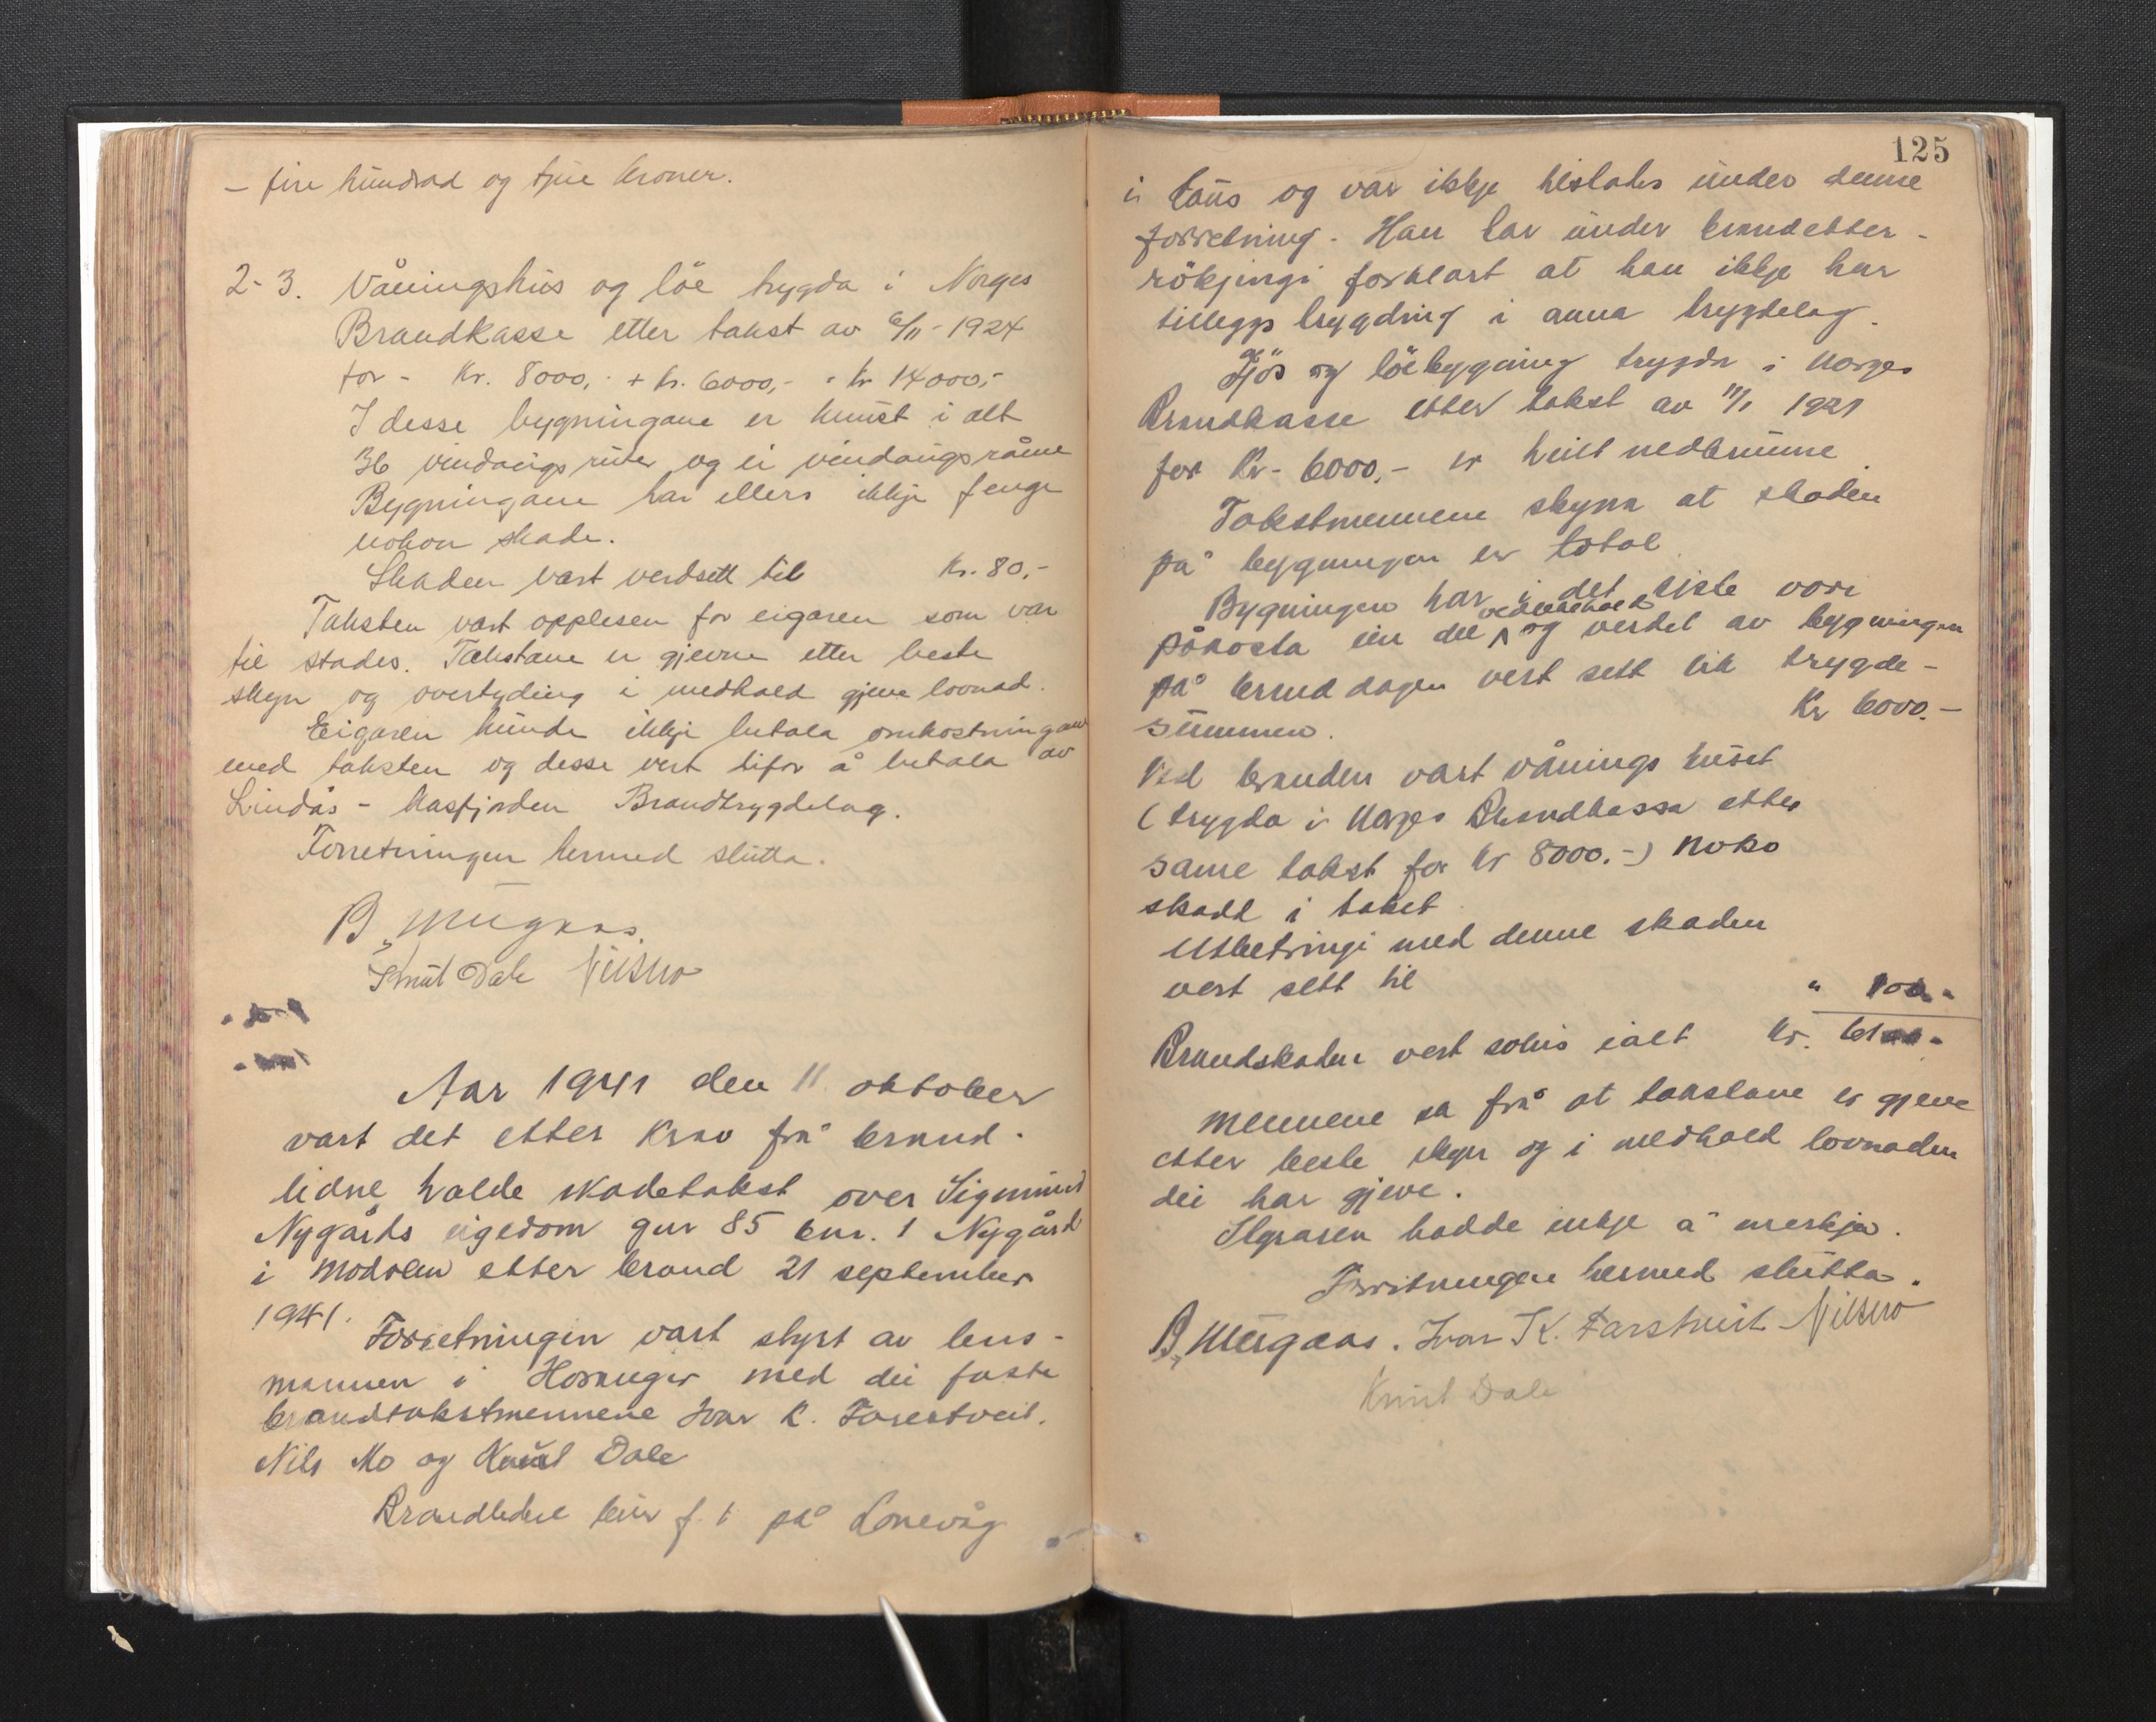 – fire hundrad og tjue kroner.
2-3. Våningshus og löe trygda i Norges
Brandkasse etter takst av 6/11-1924
for - Kr. 8000,- + kr. 6000,- = kr 14000,-
I desse bygningane er knust i alt
36 vindaugsruter og ei vindaugsråme
Bygningane har ellers ikkje fenge
nokon skade.
Skaden vart verdsett til Kr. 80,-
Taksten vart opplesen for eigaren som var
til stades. Takstane er gjevne etter beste
skyn og overtyding i medhald gjeve lovnad.
Eigaren kunde ikkje betala omkostningane
med taksten og desse vert tifor å betala av
Lindås - Masfjorden Brandtrygdelag.
Forretningen hermed slutta.
B. Mugaas.
Knut Dale Nils Mo
Aar 1941 den 11 oktober
vart det etter krav frå brand-
lidne halde skadetakst over Sigmund
Nygårds eigedom gnr 85 bnr. 1 Nygård
i Modalen etter brand 21 september
1941.
Forretningin vart styrt av lens-
mannen i Hosanger med dei faste
brandtakstmennene Ivar K. Farestveit,
Nils Mo og Knut Dale
Brandlidne bur f. t. på Lonevåg
125
i Haus og var ikkje tilstades under denne
forretning. Han har under brandetter-
rökjingi forklart at han ikkje har
tilleggs trygding i anna trygdelag.
Fjös og löebygning trygda i Norges
Brandkasse etter takst av 11/1 1921
for Kr- 6000,- er heilt nedbrunne.
Takstmennene skyna at skaden
på bygningen er total.
Bygningen har i det siste vore
påkosta ein del vedlikehold og verdet av bygningen
på branddagen vert sett lik trygde-
summen. Kr 6000.-
Ved branden vart våningshuset
(trygda i Norges Brandkassa etter
same takst for kr 8000.-) noko
skadd i taket.
Utbetringi med denne skaden
vert sett til " 100.-
Brandskaden vert soleis ialt Kr. 6100.-
Mennene sa frå at takstane er gjeve
etter beste skyn og i medhald lovnaden
dei har gjeve.
Eigaren hadde inkje å merkja.
Forretningen hermed slutta.
B. Mugaas. Ivar K. Farestveit Nils Mo
Knut Dale